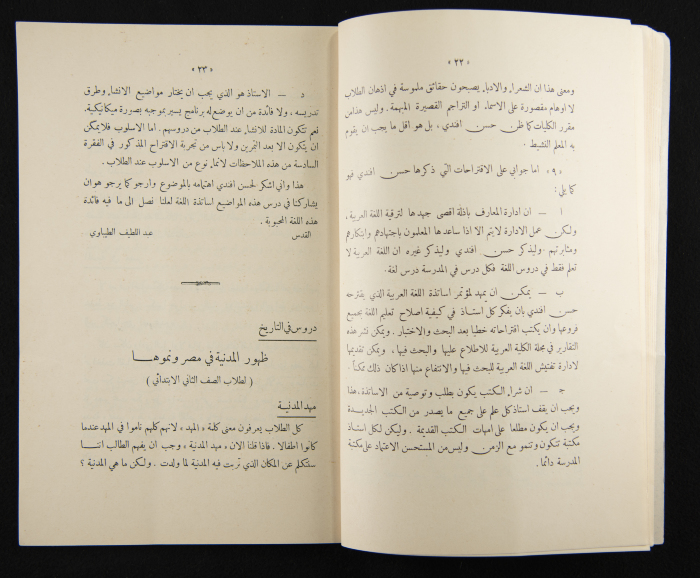 « ٢٢ »
ومعنى هذا ان الشعراء والادباء يصبحون حقائق ملموسة في اذهان الطلاب
لا اوهام مقصورة على الاسماء او التراجم القصيرة المبهمة . وليس هذا من
مقرر الكليات كما ظن حسن افندي ، بل هو اقل ما يجب ان يقوم
به المعلم النشيط .
« ٩ » اما جوابي على الاقتراحات التي ذكرها حسن افندي فهو
كما يلي :
ا — ان ادارة المعارف باذلة اقصى جهدها لترقية اللغة العربية ،
ولكن عمل الادارة لا يتم الا اذا ساعدها المعلمون باجتهادهم وابتكارهم
ومثابرتهم . وليذكر حسن افندي وليذكر غيره ان اللغة العربية لا
تعلم فقط في دروس اللغة فكل درس في المدرسة درس لغة .
ب — يمكن ان يمهد لمؤتمر اساتذة اللغة العربية الذي يقترحه
حسن افندي بان يفكر كل استاذ في كيفية اصلاح تعليم اللغة بجميع
فروعها وان يكتب اقتراحاته خطيا بعد البحث والاختبار . ويمكن نشر هذه
التقارير في مجلة الكلية العربية للاطلاع عليها والبحث فيها ، ويمكن تقديمها
لادارة تفتيش اللغة العربية للبحث فيها والانتفاع منها اذا كان ذلك ممكناً .
ج — ان شراء الكتب يكون بطلب وتوصية من الاساتذة ، هذا
ويجب ان يقف استاذ كل علم على جميع ما يصدر من الكتب الجديدة
ويجب ان يكون مطلعا على امهات الكتب القديمة . وليكن لكل استاذ
مكتبة تتكون وتنمو مع الزمن وليس من المستحسن الاعتماد على مكتبة
المدرسة دائما .
« ٢٣ »
د — الاستاذ هو الذي يجب ان يختار مواضيع الانشاء وطرق
تدريسه ، ولا فائدة من ان يوضع له برنامج يسير بموجبه بصورة ميكانيكية .
نعم تتكون المادة للانشاء عند الطلاب من دروسهم . اما الاسلوب فلا يمكن
ان يتكون الا بعد التمرين ولا باس من تجربة الاقتراح المذكور في الفقرة
السادسة من هذه الملاحظات لانماء نوع من الاسلوب عند الطلاب .
هذا واني اشكر لحسن افندي اهتمامه بالموضوع وارجو كما يرجو هو ان
يشاركنا في درس هذه المواضيع اساتذة اللغة لعلنا نصل الى ما فيه فائدة
هذه اللغة المحبوبة .
القدس عبد اللطيف الطيباوي
دروس في التاريخ
ظهور المدنية في مصر ونموهــا
( لطلاب الصف الثاني الابتدائي )
مهد المدنية
كل الطلاب يعرفون معنى كلمة « المهد » لانهم كلهم ناموا في المهد عندما
كانوا اطفالا . فاذا قلنا الان « مهد المدنية » وجب ان يفهم الطالب اننــا
سنتكلم عن المكان الذي تربت فيه المدنية لما ولدت . ولكن ما هي المدنية ؟